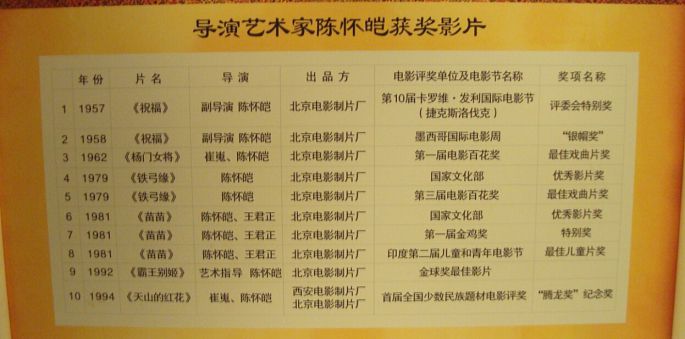 导演艺术家陈怀皑获奖影片
年份 片名 导演 出品方 电影评奖单位及电影节名称 奖项名称
1 1957 《祝福》 副导演 陈怀皑 北京电影制片厂 第10届卡罗维·发利国际电影节（捷克斯洛伐克） 评委会特别奖
2 1958 《祝福》 副导演 陈怀皑 北京电影制片厂 墨西哥国际电影周 “银帽奖”
3 1962 《杨门女将》 崔嵬、陈怀皑 北京电影制片厂 第一届电影百花奖 最佳戏曲片奖
4 1979 《铁弓缘》 陈怀皑 北京电影制片厂 国家文化部 优秀影片奖
5 1979 《铁弓缘》 陈怀皑 北京电影制片厂 第三届电影百花奖 最佳戏曲片奖
6 1981 《苗苗》 陈怀皑、王君正 北京电影制片厂 国家文化部 优秀影片奖
7 1981 《苗苗》 陈怀皑、王君正 北京电影制片厂 第一届金鸡奖 特别奖
8 1981 《苗苗》 陈怀皑、王君正 北京电影制片厂 印度第二届儿童和青年电影节 最佳儿童片奖
9 1992 《霸王别姬》 艺术指导 陈怀皑 北京电影制片厂 金球奖最佳影片
10 1994 《天山的红花》 崔嵬、陈怀皑 西安电影制片厂 北京电影制片厂 首届全国少数民族题材电影评奖 “腾龙奖”纪念奖